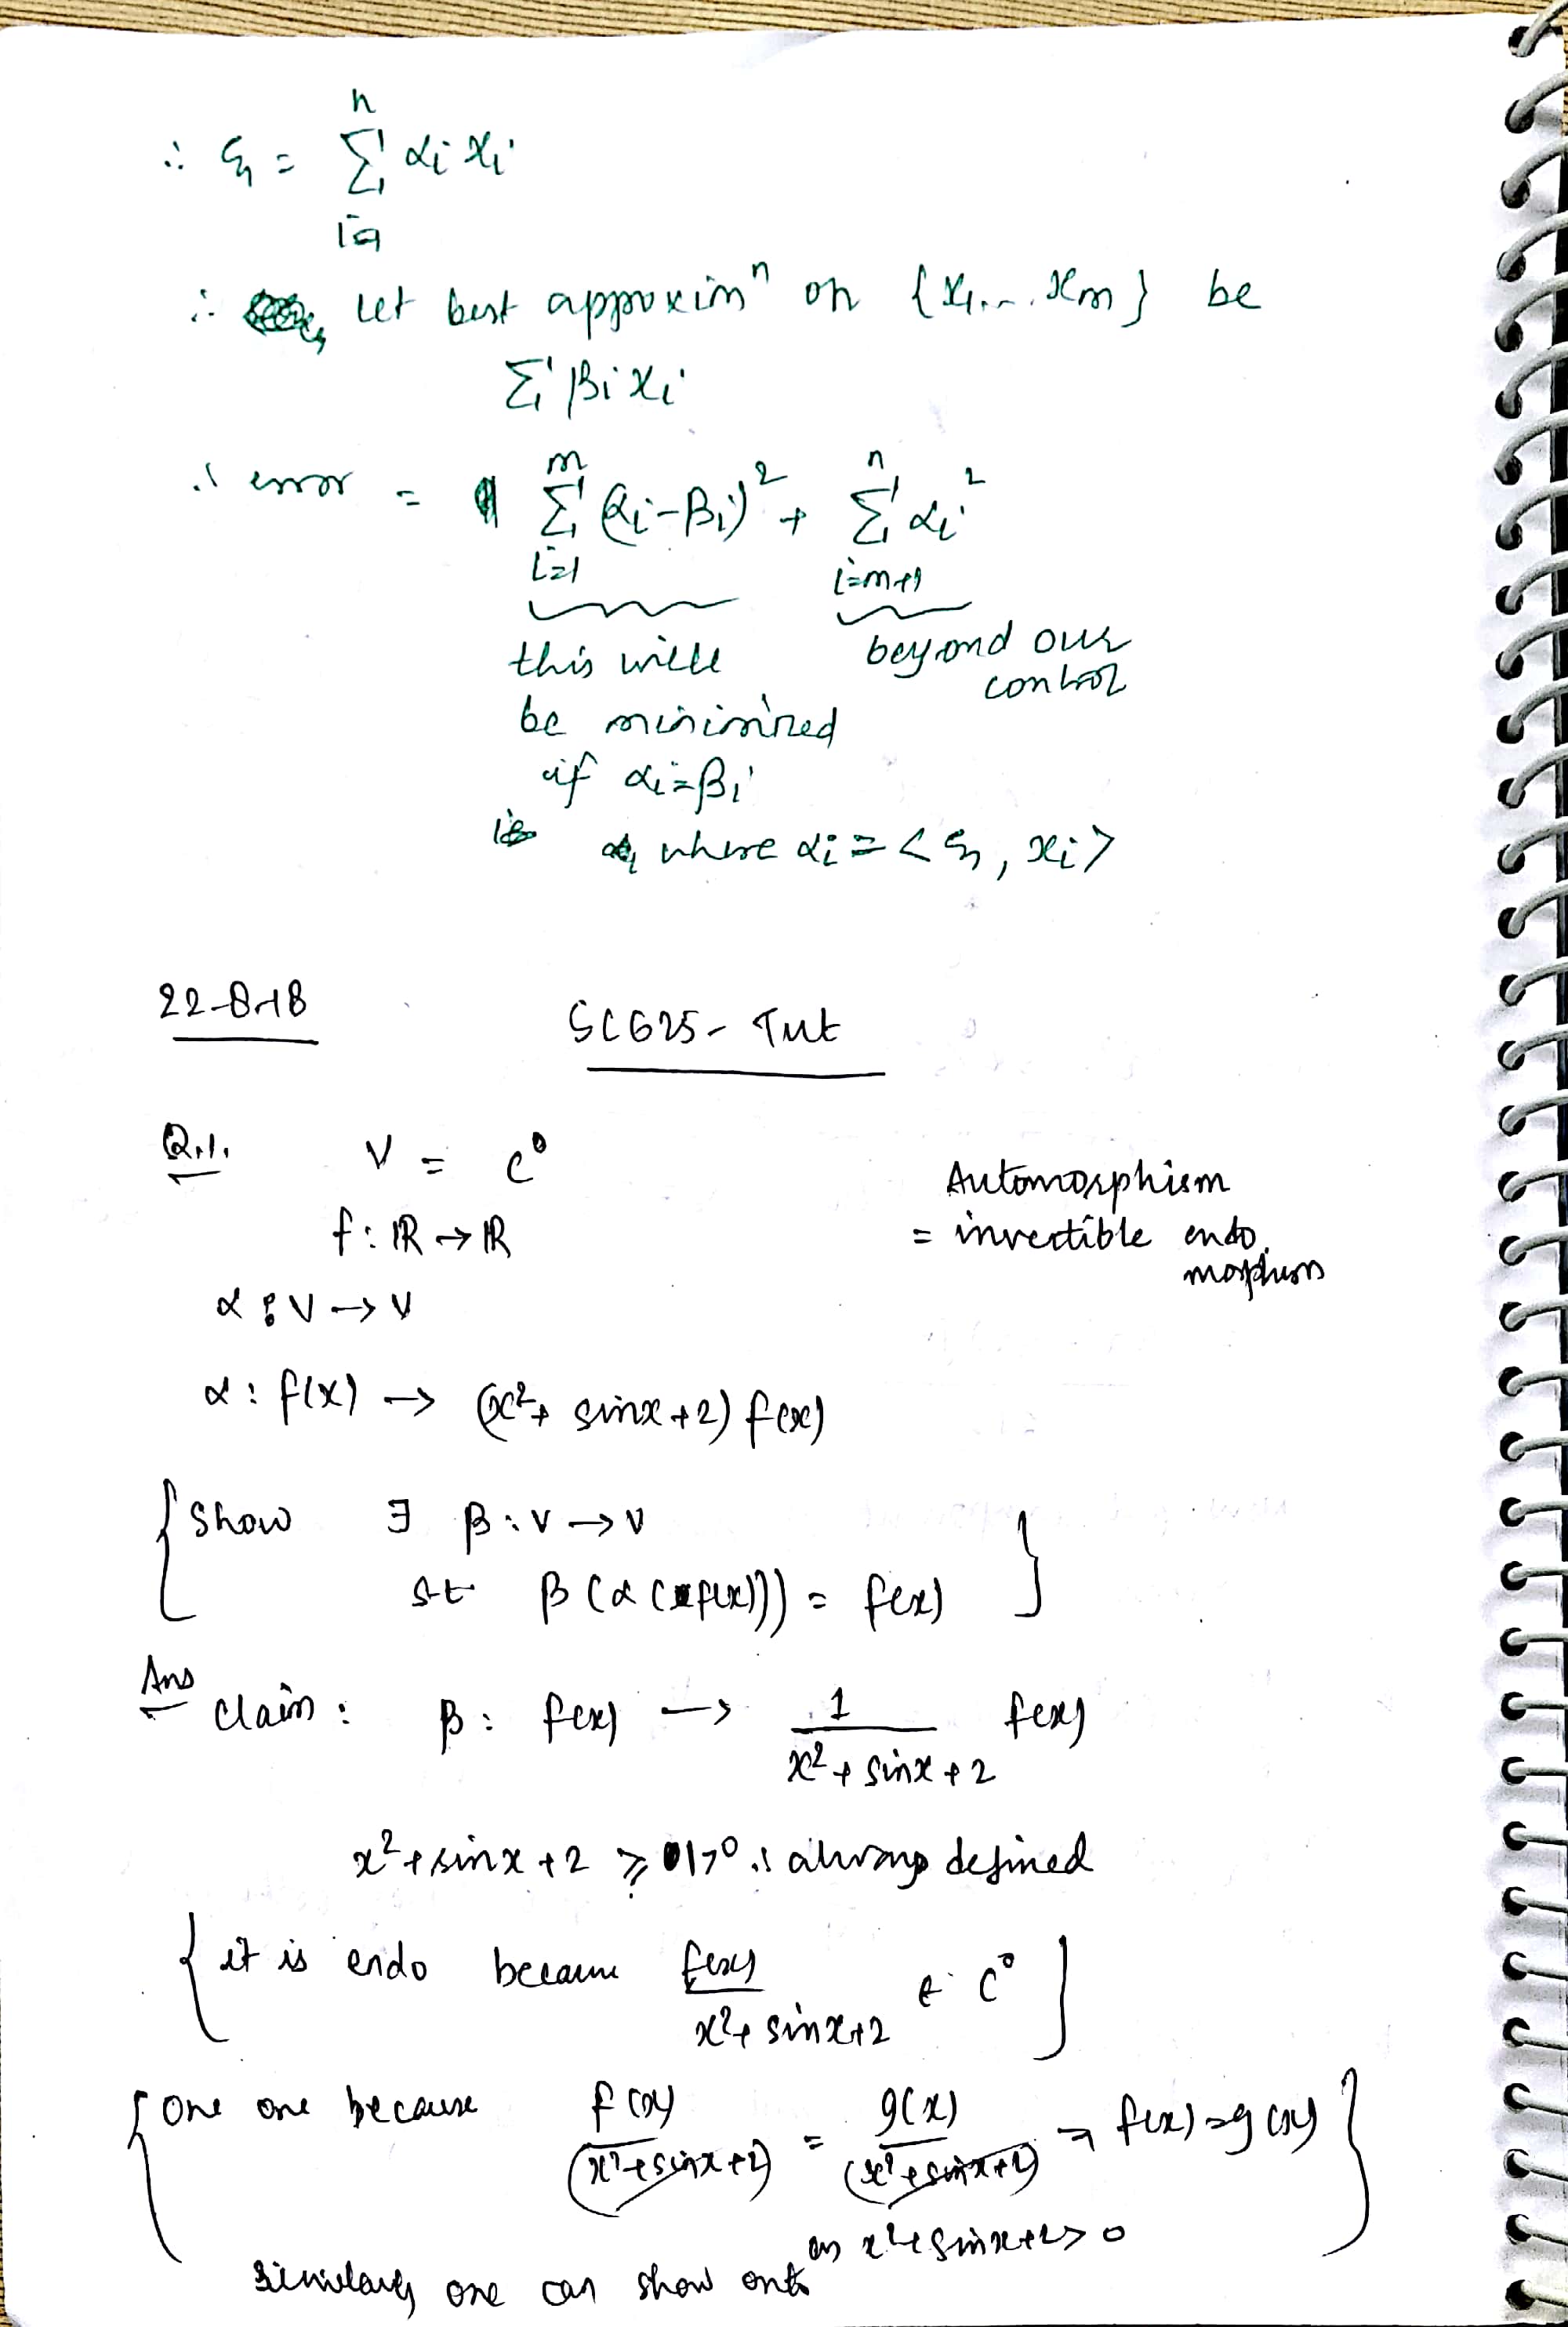 ∴ ξ = n Σ i=1 αi xi
∴ Let best approximⁿ on {x1.... xm} be
Σ βi xi
∴ error = m Σ i=1 (αi-βi)² + n Σ i=m+1 αi²
this will
be minimized
if αi=βi
beyond our
control
where αi = <ξ, xi>
22-8-18
SC625- Tut
Q.1. V = C⁰
f: ℝ → ℝ
α : V → V
α : f(x) → (x²+ sinx+2) f(x)
Automorphism
= invertible endo
morphism
{ Show ∃ β: V → V
s.t β(α(f(x))) = f(x) }
Ans
Claim: β: f(x) → 1/(x²+ sinx+2) f(x)
x²+sinx+2 ≥ 1>0 ∴ always defined
{ it is endo because f(x)/(x²+ sinx+2) ∈ C⁰ }
{ One one because f(x)/(x²+sinx+2) = g(x)/(x²+sinx+2) ⇒ f(x)=g(x) }
as x²+sinx+2>0
Similarly one can show onto